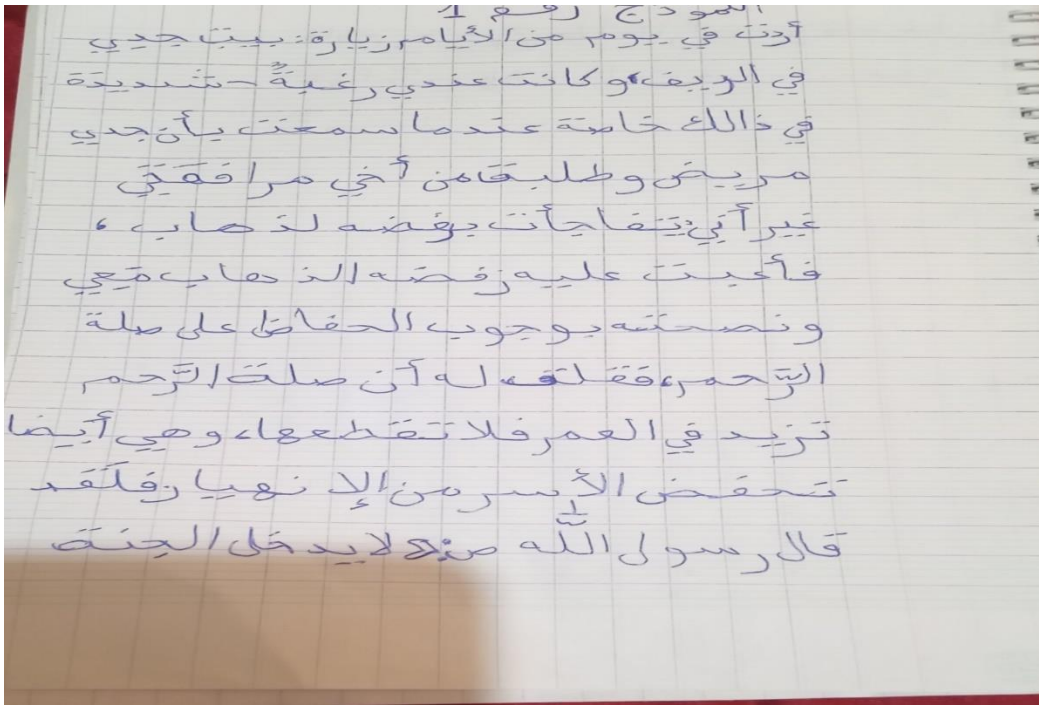 النموذج رقم 1
أردت في يوم من الأيام زيارة بيت جدي
في الريف، وكانت عندي رغبةً شديدة
في ذالك خاصة عندما سمعت بأن جدي
مريض وطلبت من أخي مرافقتي
غير أنني تفاجأت برفضه لذهاب،
فأعبت عليه رفضه الذهاب معي
ونصحته بوجوب الحفاظ على صلة
الرّحم، فقلت له أن صلت الرّحم
تزيد في العمر فلا تقطعها، وهي أيضا
تحفض الأسر من الإنهيار، فلَقد
قال رسول اللّه ص: لا يدخل الجنة